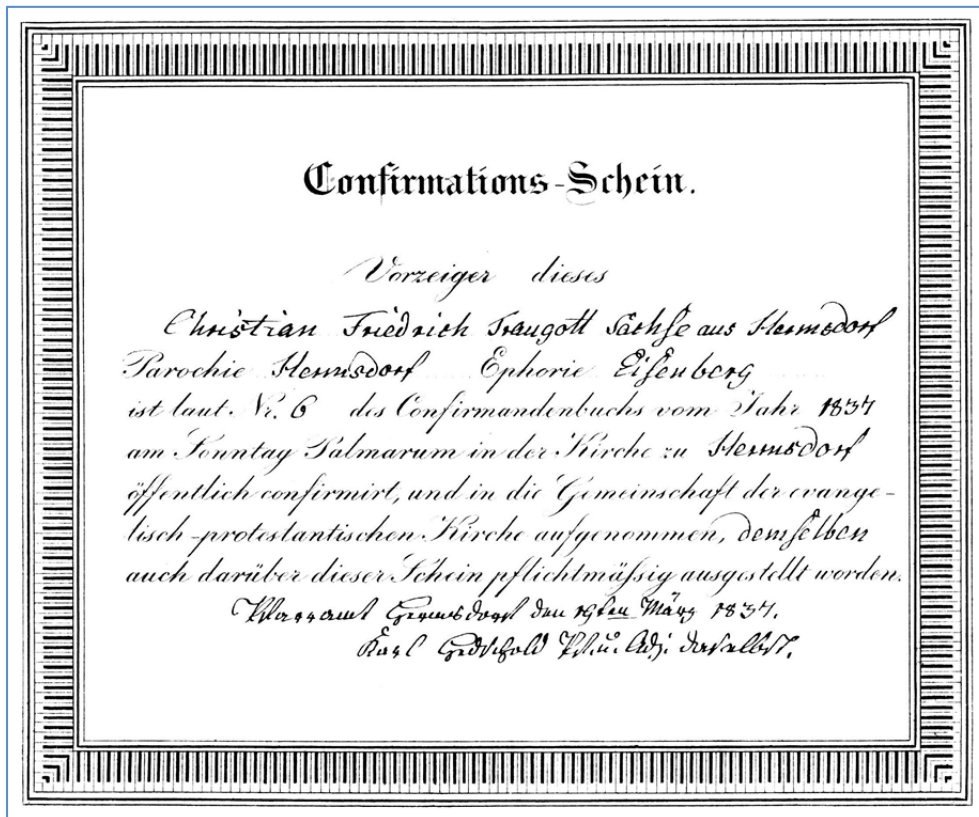 Confirmations-Schein.
Vorzeiger dieses
Christian Friedrich Traugott Sachse aus Hermsdorf
Parochie Hermsdorf Ephorie Eisenberg
ist laut Nr. 6 des Confirmandenbuchs vom Jahr 1837
am Sonntag Palmarum in der Kirche zu Hermsdorf
öffentlich confirmirt, und in die Gemeinschaft der evange-
lisch-protestantischen Kirche aufgenommen, demselben
auch darüber dieser Schein pflichtmässig ausgestellt worden.
Pfarramt Hermsdorf den 19ten März 1837.
Karl Pf. u. Adj. daselbst.